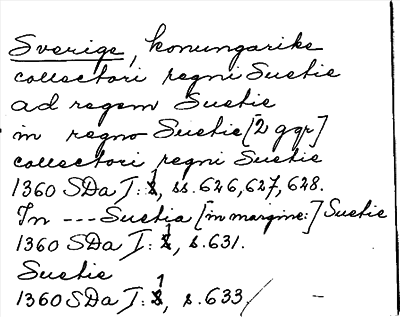 Sverige, konungarike
collectori regni Suetie
ad regem Suetie
in regno Suetie [2 ggr]
collectori regni Suetie
1360 SDa I: 1, ss. 626, 627, 628.
In --- Suetia [in margine:] Suetie
1360 SDa I: 1, s. 631.
Suetie
1360 SDa I: 1, s. 633/ -